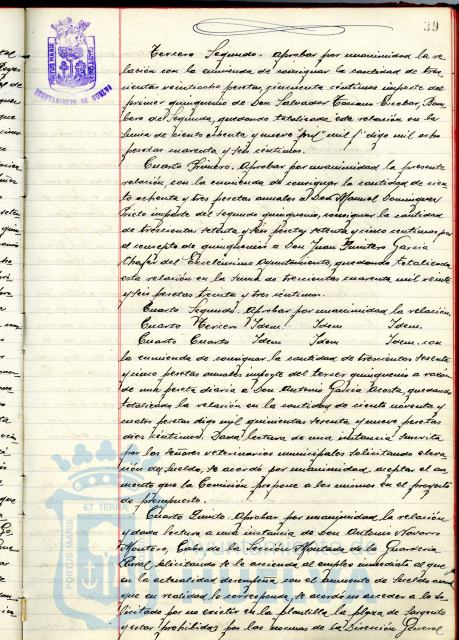 39
AYUNTAMIENTO DE HUELVA
Tercero Segundo. Aprobar por unanimidad la re-
lación con la enmienda de consignar la cantidad de tres-
cientas veintiocho pesetas, cincuenta céntimos importe del
primer quinquenio de Don Salvador Escobar, Bom-
bero del Segunda, quedando totalizada esta relación en la
suma de ciento ochenta y nueve mil digo mil ocho
pesetas cuarenta y seis céntimos.
Cuarto Primero. Aprobar por unanimidad la presente
relación, con la enmienda de consignar la cantidad de cien-
to ochenta y tres pesetas anuales a Don Manuel Domínguez
Prieto importe del segundo quinquenio, consignar la cantidad
de trescientas setenta y seis pesetas setenta y cinco céntimos por
el concepto de quinquenio a Don Juan García
Chofer del Excelentísimo Ayuntamiento, quedando totalizada
esta relación en la suma de trescientas cuarenta mil veinte
y seis pesetas treinta y tres céntimos.
Cuarto Segundo. Aprobar por unanimidad la relación.
Cuarto Tercero Idem Idem Idem.
Cuarto Cuarto Idem Idem Idem. con
la enmienda de consignar la cantidad de trescientas sesenta
y cinco pesetas anuales importe del tercer quinquenio a razón
de una peseta diaria a Don Antonio García Acosta, quedando
totalizada la relación en la cantidad de ciento noventa y
cuatro pesetas digo mil quinientas sesenta y nueve pesetas
diez céntimos. Dada lectura de una instancia suscrita
por los señores veterinarios municipales solicitando eleva-
ción de sueldo, se acordó por unanimidad aceptar el au-
mento que la Comisión propone a los mismos en el proyecto
de presupuesto.
Cuarto Quinto. Aprobar por unanimidad la relación
y dada lectura a una instancia de Don Antonio Navarro
Montero, Cabo de la Sección Montada de la Guardería
Rural solicitando se le ascienda al empleo inmediato al que
en la actualidad desempeña con el aumento de sueldo anual
que en realidad le corresponda, se acordó no acceder a lo so-
licitado por no existir en la plantilla la plaza de Sargento
y estar prohibidos por las normas de la Dirección General